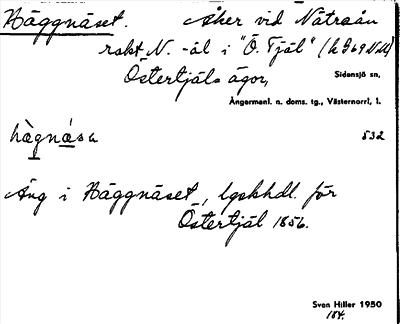 Häggnäset. Åker vid Nätraån
rakt N. -äl i "Ö. Tjäl" (k 969 NW)
Östertjäls ägor,
Sidensjö sn,
Ångermanl. n. doms. tg., Västernorrl, l.
hägnäsa 532
Äng i Häggnäset, lgskhdl. för
Östertjäl 1856.
Sven Hiller 1950
184.